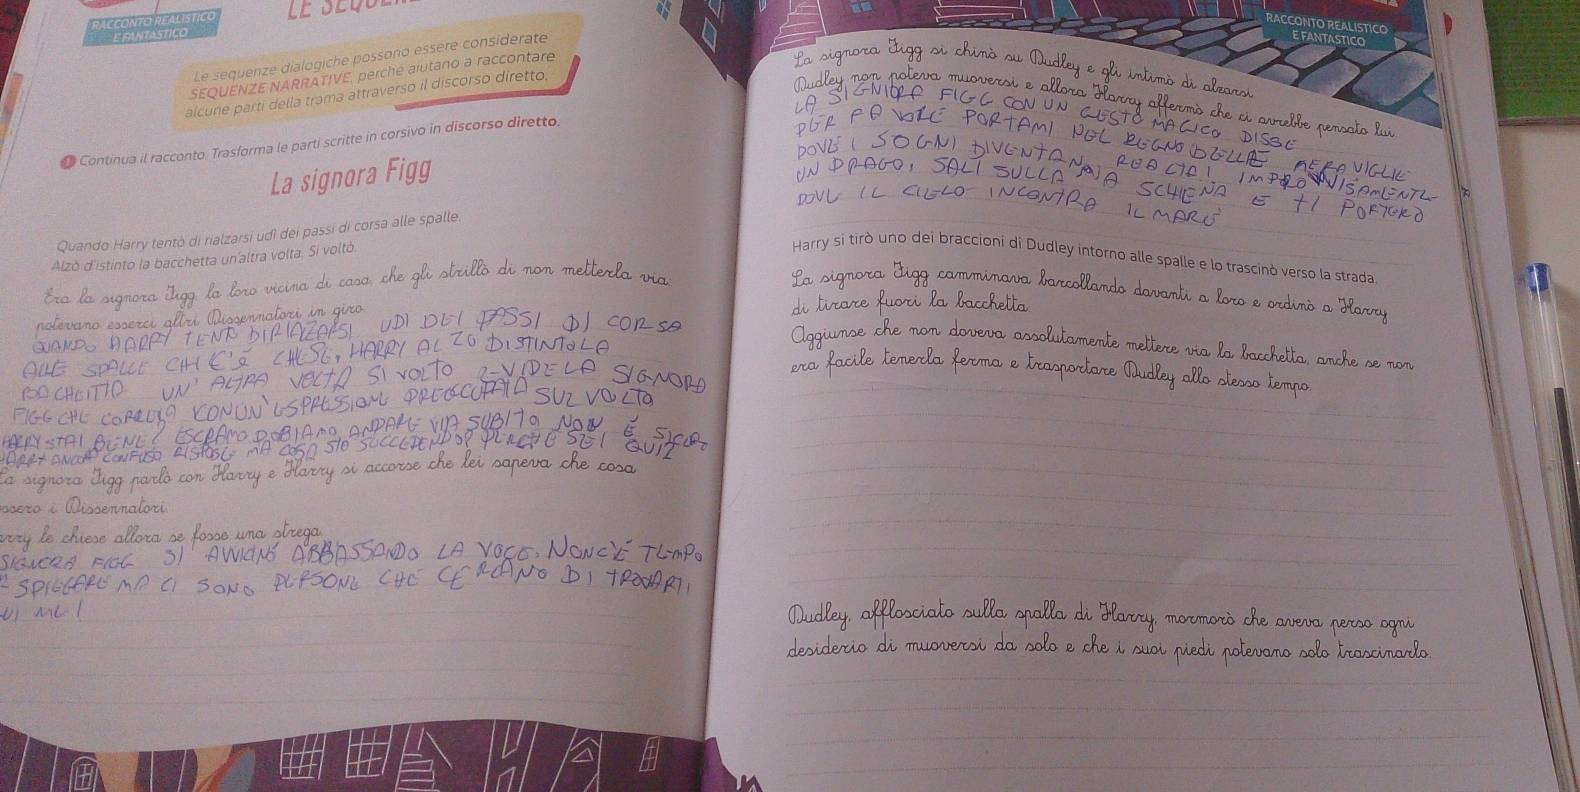 RACCONTO REALISTICO
E FANTASTICO
Le sequenze dialogiche possono essere considerate
SEQUENZE NARRATIVE, perché aiutano a raccontare
alcune parti della trama attraverso il discorso diretto.
1 Continua il racconto. Trasforma le parti scritte in corsivo in discorso diretto.
La signora Figg
Quando Harry tentò di rialzarsi udì dei passi di corsa alle spalle.
Alzò d'istinto la bacchetta un'altra volta. Si voltò.
Era la signora Figg, la loro vicina di casa, che gli strillò di non metterla via:
potevano esserci altri Dissennatori in giro.
QUANDO HARRY TENTÒ DIRIALZARSI UDÌ DEI PASSI DI CORSA
ALLE SPALLE CHI C'È CHIESE, HARRY ALZÒ DISTINTOLA
BACHEITTA UN'ALTRA VOLTA SI VOLTO E VIDE LA SIGNORA
FIGG CHE CORREVA CON UN'ESPRESSIONE PREOCCUPATA SUL VOLTO
HARRY STAI BENE? DOBIAMO ANDARE VIA SUBITO NON È SICURO
HARRY ANCORA CONFUSO RISPOSE MA COSA STA SUCCEDENDO? PERCHÈ SEI QUI?
La signora Figg parlò con Harry e Harry si accorse che lei sapeva che cosa
fossero i Dissennatori.
Harry le chiese allora se fosse una strega.
SIGNORA FIGG SI AVVICINÒ ABBASSANDO LA VOCE. NON C'È TEMPO
SPIEGARE MA CI SONO PERSONE CHE CERCANO DI TROVARTI
RACCONTO REALISTICO
E FANTASTICO
La signora Figg si chinò su Dudley e gli intimò di alzarsi.
Dudley non poteva muoversi e allora Harry affermò che ci avrebbe pensato lui.
LA SIGNIORA FIGG CON UN GESTO MAGICO DISSE
PER FAVORE PORTAMI NEL REGNO DELLE MERAVIGLIE
DOVE I SOGNI DIVENTANO REALTAI IMPROVVISAMENTE
UN DRAGO, SALI SULLA MIA SCHIENA E TI PORTERÒ
DOVE IL CIELO INCONTRA IL MARE
Harry si tirò uno dei braccioni di Dudley intorno alle spalle e lo trascinò verso la strada.
La signora Figg camminava barcollando davanti a loro e ordinò a Harry
di tirare fuori la bacchetta.
Aggiunse che non doveva assolutamente mettere via la bacchetta, anche se non
era facile tenerla ferma e trasportare Dudley allo stesso tempo.
Dudley, afflosciato sulla spalla di Harry, mormorò che aveva perso ogni
desiderio di muoversi da solo e che i suoi piedi potevano solo trascinarlo.